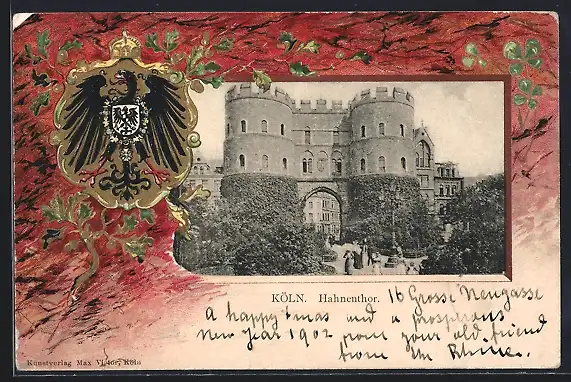 KÖLN. Hahnenthor.
16 Grosse Neugasse
A happy Xmas and a prosperous
New Year 1902 from your old friend
from the Rhine.
Kunstverlag Max Victor, Köln